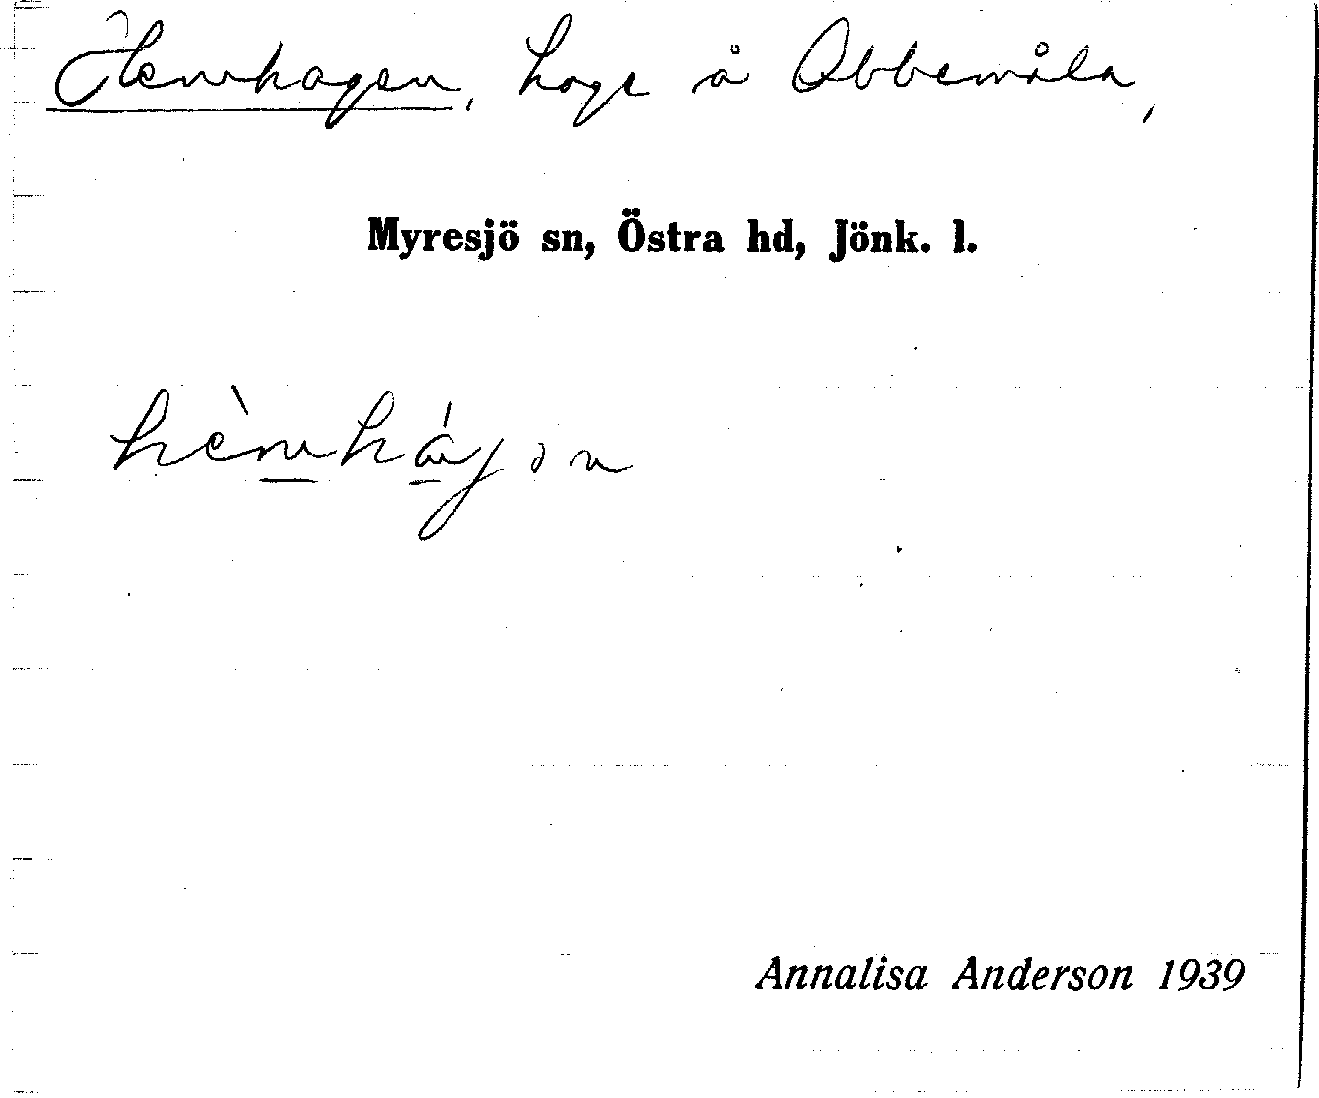 Hemhagen, hage å Obbemåla,
Myresjö sn, Östra hd, Jönk. l.
hèmhágən
Annalisa Anderson 1939